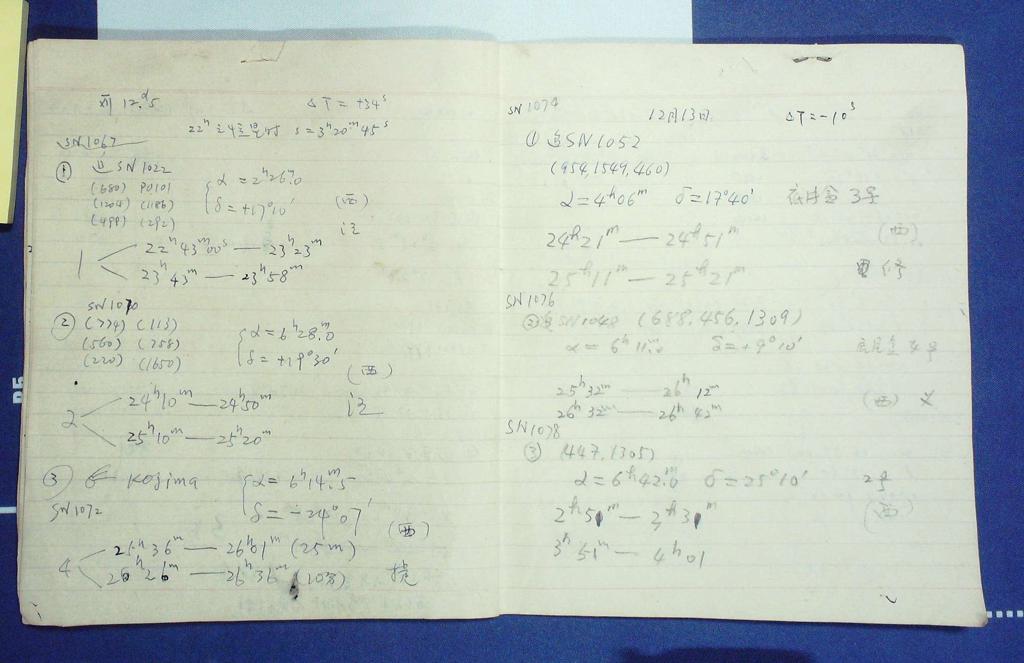 12.ᵈ5 ΔT = +34ˢ
22ʰ S=3ʰ20ᵐ45ˢ
SN1067
① 追SN1022
(680) P0101
(1204) (1186)
(499) (292)
α = 2ʰ26ᵐ.0
δ = +17°10′
(西)
1 22ʰ43ᵐ00ˢ — 23ʰ23ᵐ
23ʰ43ᵐ — 23ʰ58ᵐ
SN1070
② (774) (113)
(560) (758)
(220) (1650)
α = 6ʰ28ᵐ.0
δ = +19°30′
(西)
2 24ʰ10ᵐ — 24ʰ50ᵐ
25ʰ10ᵐ — 25ʰ20ᵐ
③ Kojima α = 6ʰ14ᵐ.5
SN1072 δ = -24°07′
(西)
4 25ʰ36ᵐ — 26ʰ01ᵐ (25m)
26ʰ26ᵐ — 26ʰ36ᵐ
SN1074 12月13日 ΔT = -10ˢ
① 追SN1052
(954, 1549, 460)
α = 4ʰ06ᵐ δ = 17°40′ 3号
24ʰ21ᵐ — 24ʰ51ᵐ (西)
25ʰ11ᵐ — 25ʰ21ᵐ
SN1076
② 追SN1048 (688, 456, 1309)
α = 6ʰ11ᵐ.0 δ = +9°10′
25ʰ32ᵐ — 26ʰ12ᵐ
26ʰ32ᵐ — 26ʰ42ᵐ (西)
SN1078
③ (447, 1305)
α = 6ʰ42ᵐ.0 δ = 25°10′ 2号
2ʰ51ᵐ — 3ʰ31ᵐ (西)
3ʰ51ᵐ — 4ʰ01